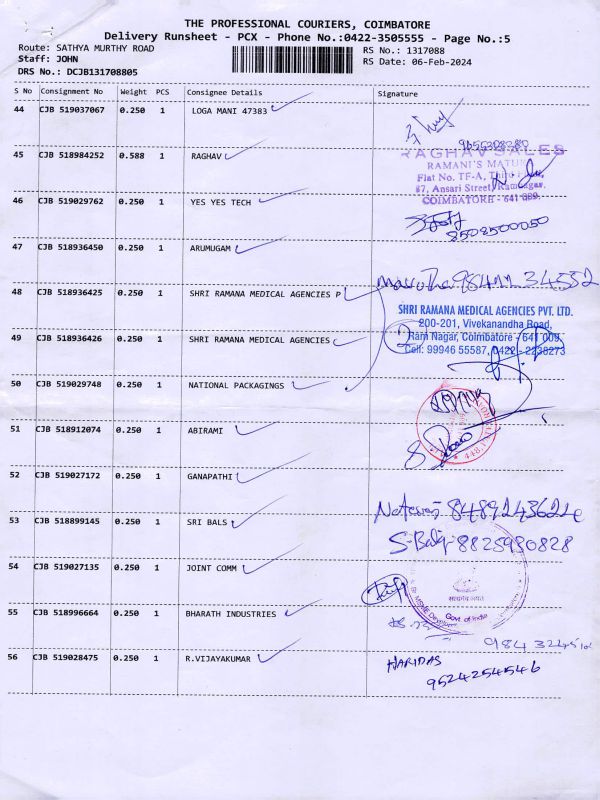 THE PROFESSIONAL COURIERS, COIMBATORE
Delivery Runsheet - PCX - Phone No.:0422-3505555 - Page No.:5
Route: SATHYA MURTHY ROAD
RS No.: 1317088
Staff: JOHN
RS Date: 06-Feb-2024
DRS No.: DCJB131708805
S No Consignment No Weight PCS Consignee Details Signature
44 CJB 519037067 0.250 1 LOGA MANI 47383
45 CJB 518984252 0.588 1 RAGHAV
RAGHAV SALES
RAMANI'S
Flat No. TF-A, Third
87, Ansari Street, Ramnagar.
COIMBATORE - 641 009.
46 CJB 519029762 0.250 1 YES YES TECH
8508500050
47 CJB 518936450 0.250 1 ARUMUGAM
48 CJB 518936425 0.250 1 SHRI RAMANA MEDICAL AGENCIES P
SHRI RAMANA MEDICAL AGENCIES PVT. LTD.
200-201, Vivekanandha Road,
Ram Nagar, Coimbatore - 641 009
Cell: 99946 55587, 0422 - 2238273
49 CJB 518936426 0.250 1 SHRI RAMANA MEDICAL AGENCIES
2
50 CJB 519029748 0.250 1 NATIONAL PACKAGINGS
51 CJB 518912074 0.250 1 ABIRAMI
52 CJB 519027172 0.250 1 GANAPATHI
53 CJB 518899145 0.250 1 SRI BALS
8825980828
54 CJB 519027135 0.250 1 JOINT COMM
Govt. of India
55 CJB 518996664 0.250 1 BHARATH INDUSTRIES
56 CJB 519028475 0.250 1 R.VIJAYAKUMAR
HARIDAS
9524254546